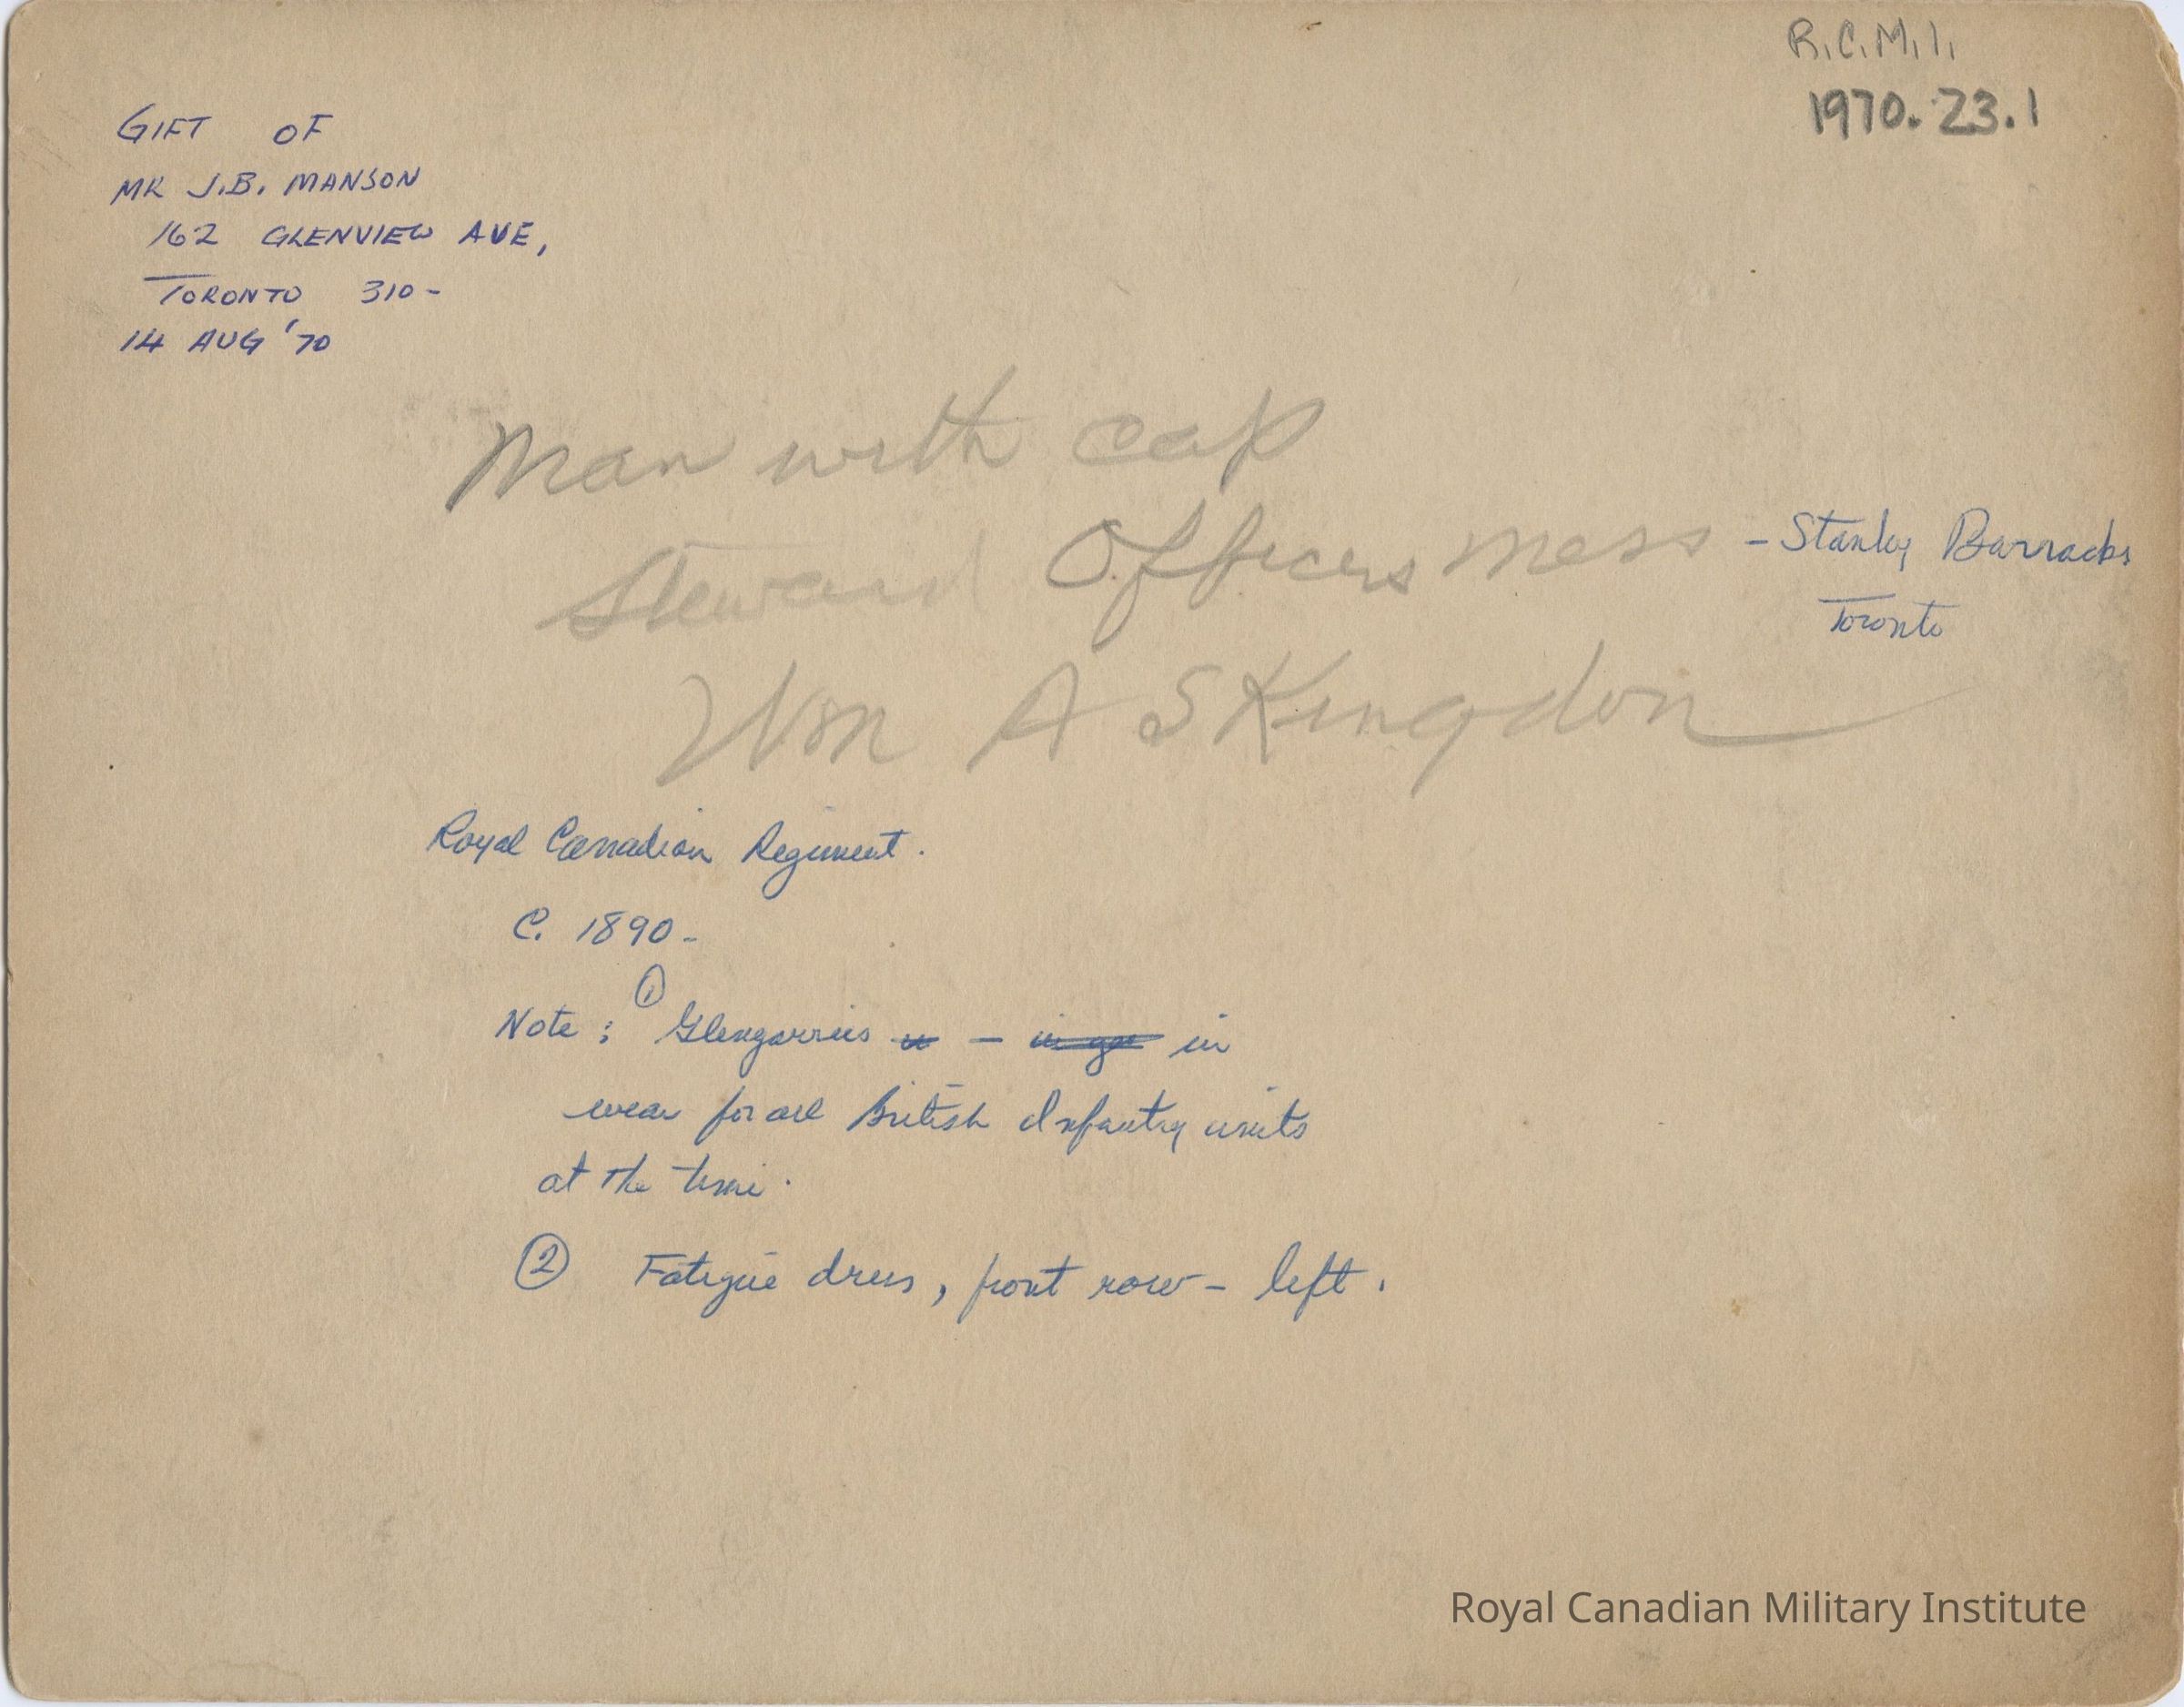 R.C.M.I.
1970.23.1
GIFT OF
MR J.B. MANSON
162 GLENVIEW AVE,
TORONTO 310-
14 AUG '70
Man with cap
Steward Officers mess - Stanley Barracks
Toronto
Wm A S Kingdon
Royal Canadian Regiment.
C. 1890-
Note: ① Glengarries - in
wear for all British Infantry units
at the time.
② Fatigue dress, front row - left.
Royal Canadian Military Institute